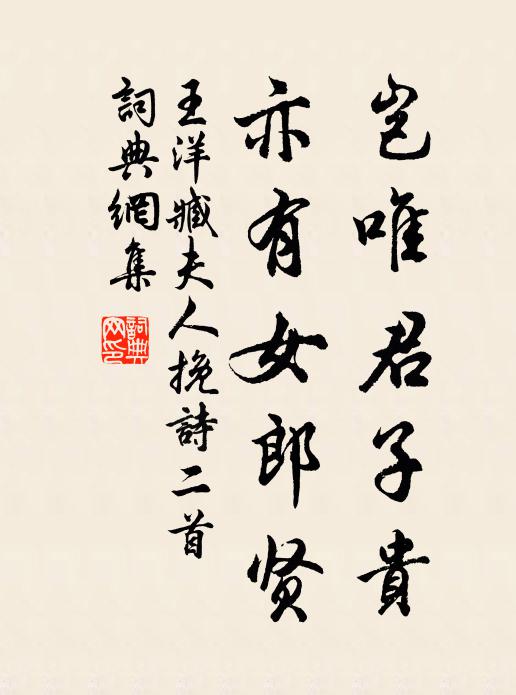 岂唯君子貴
亦有女郎贤
王洋臧夫人挽詩二首
詞典網集
詞典网印